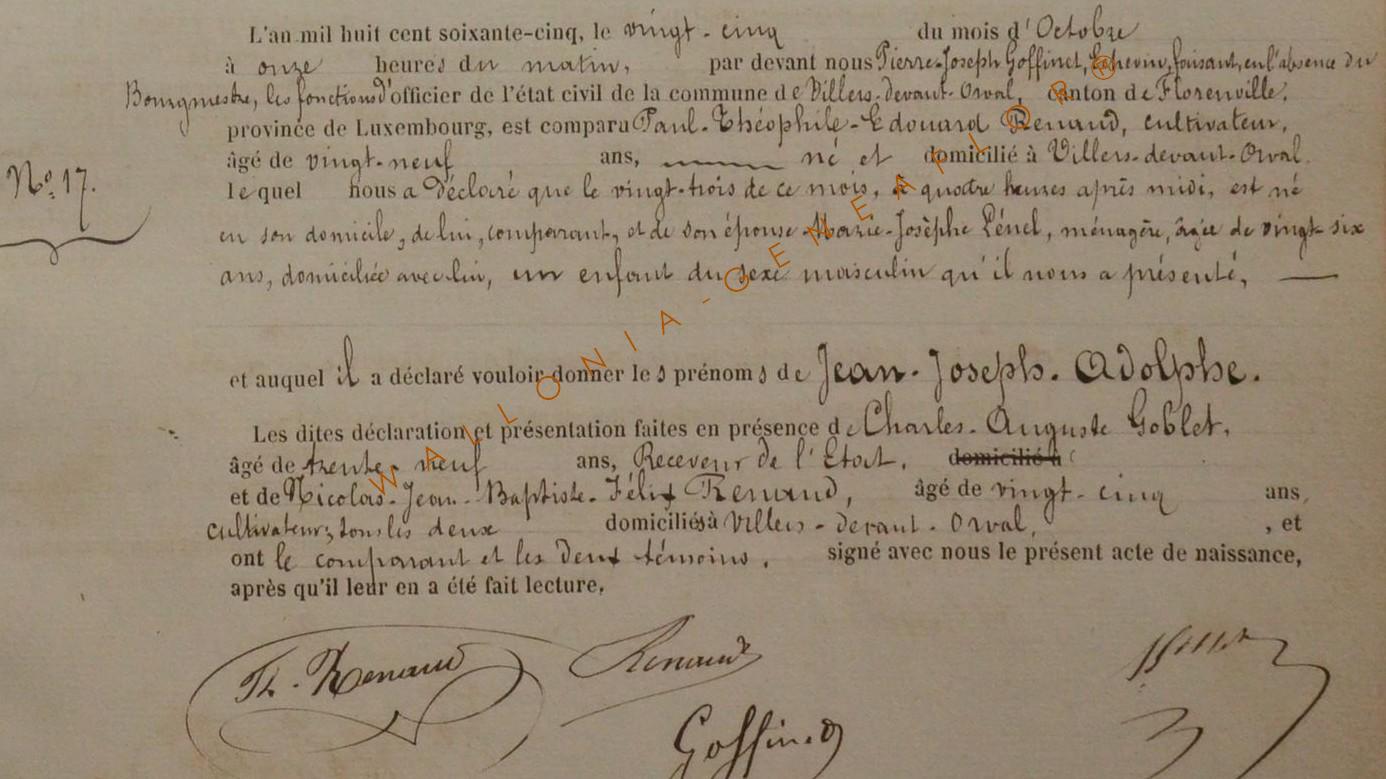 L'an mil huit cent soixante-cinq, le vingt-cinq du mois d'Octobre
à onze heures du matin, par devant nous Pierre-Joseph Goffinet, Echevin, faisant, en l'absence du
Bourgmestre, les fonctions d'officier de l'état civil de la commune de Villers-devant-Orval, canton de Florenville,
province de Luxembourg, est comparu Paul-Théophile-Edouard Renaud, cultivateur,
âgé de vingt-neuf ans, né et domicilié à Villers-devant-Orval.
N° 17.
lequel nous a déclaré que le vingt-trois de ce mois, à quatre heures après midi, est né
en son domicile, de lui, comparant, et de son épouse Marie-Josèphe Pénel, ménagère, âgée de vingt-six
ans, domiciliée avec lui, un enfant du sexe masculin qu'il nous a présenté,
et auquel il a déclaré vouloir donner les prénoms de Jean-Joseph-Adolphe.
Les dites déclaration et présentation faites en présence de Charles-Auguste Goblet,
âgé de trente-neuf ans, Receveur de l'Etat, domicilié à
et de Nicolas-Jean-Baptiste-Félix Renaud, âgé de vingt-cinq ans,
cultivateur, tous les deux domiciliés à Villers-devant-Orval, , et
ont le comparant et les deux témoins, signé avec nous le présent acte de naissance,
après qu'il leur en a été fait lecture.
Th. Renaud Renaud
Goffinet
WALLONIA-GENEAPI.ORG